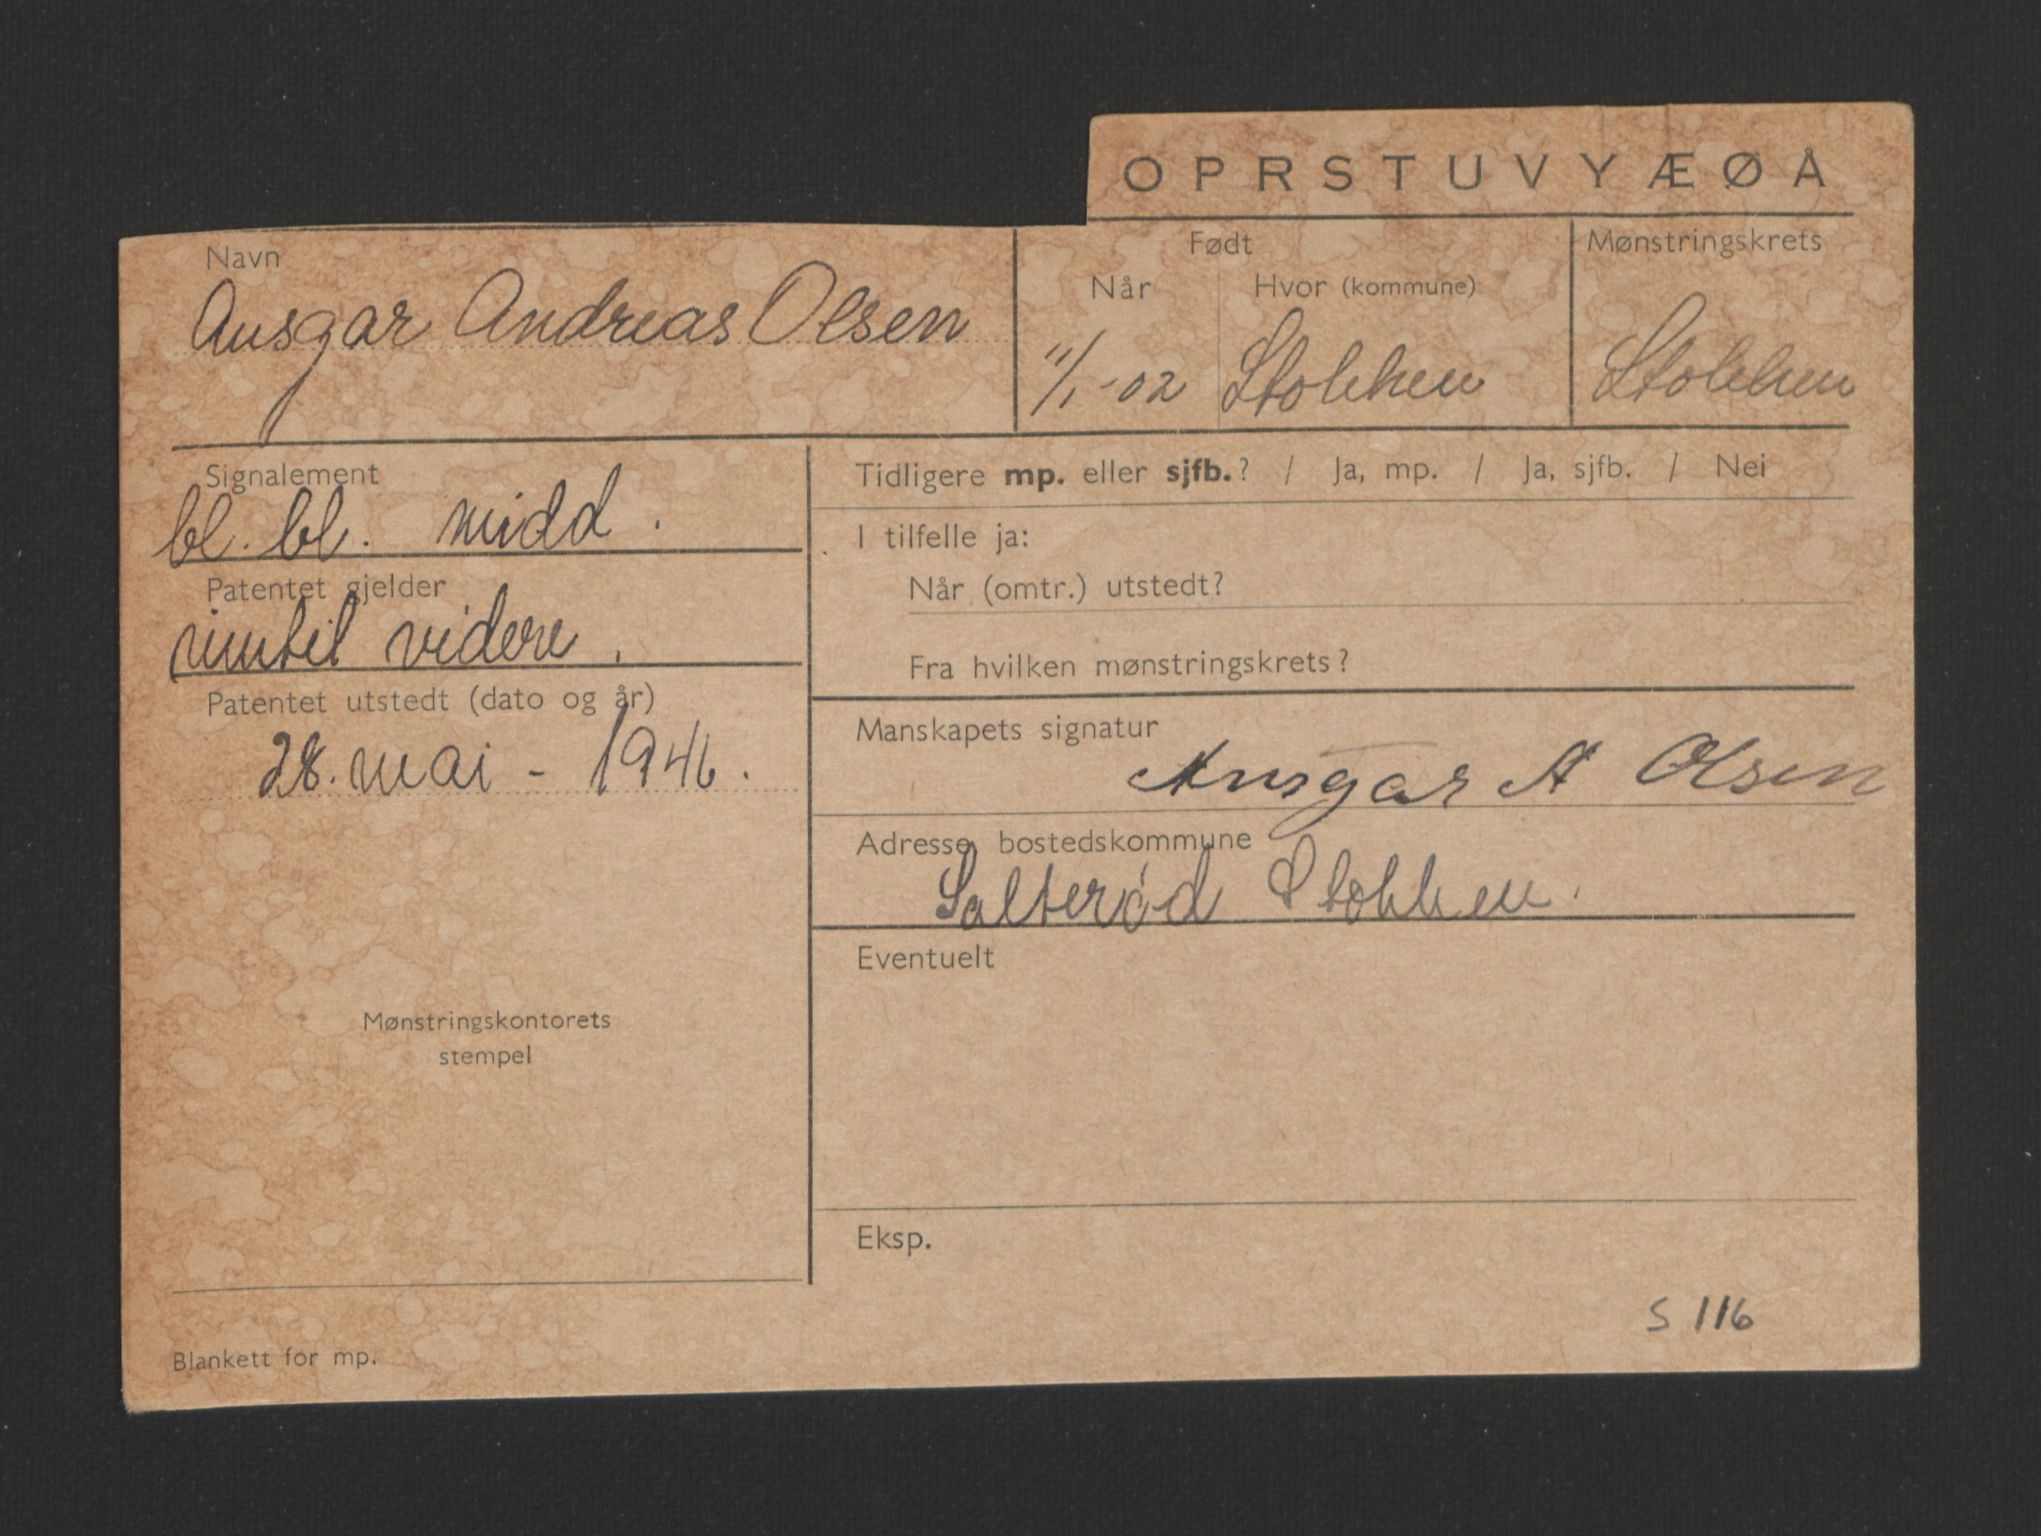 O P R S T U V Y Æ Ø Å
Navn
Født
Mønstringskrets
Når
Hvor (kommune)
Ansgar Andreas Olsen
11/1-02
Stokken
Stokken
Signalement
bl. bl. midd.
Tidligere mp. eller sjfb.? / Ja, mp. / Ja, sjfb. / Nei
I tilfelle ja:
Patentet gjelder
inntil videre.
Når (omtr.) utstedt?
Fra hvilken mønstringskrets?
Patentet utstedt (dato og år)
28. mai - 1946.
Manskapets signatur
Ansgar A Olsen
Adresse, bostedskommune
Salterød Stokken.
Eventuelt
Mønstringskontorets
stempel
Eksp.
S 116
Blankett for mp.